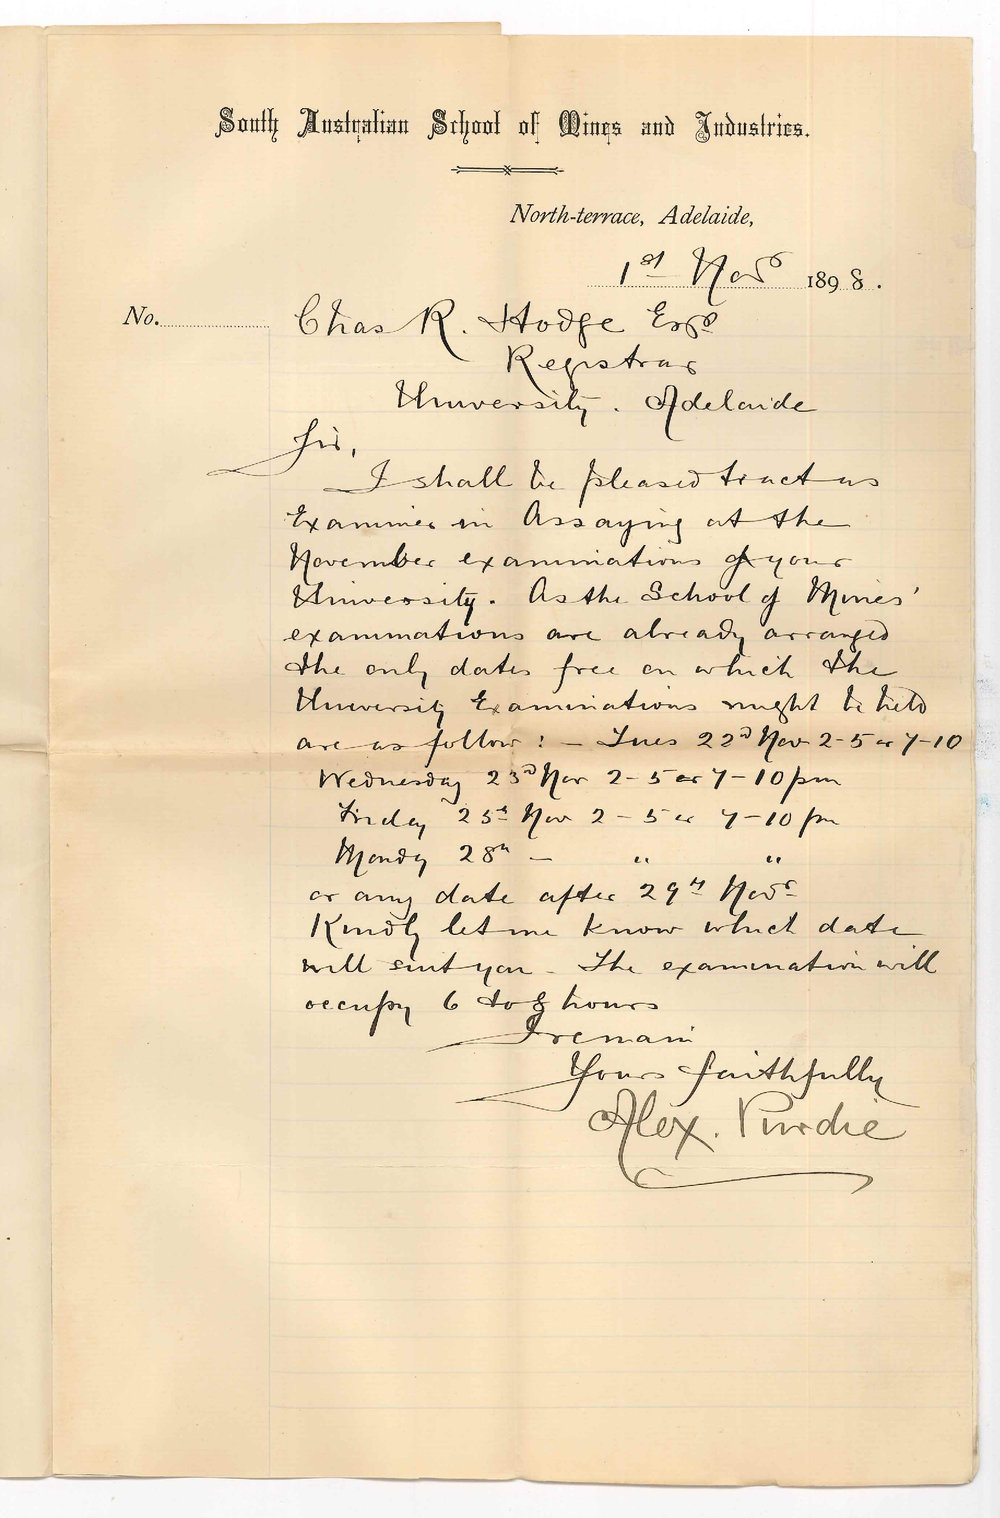 South Australian School of Mines and Industries.
North-terrace, Adelaide,
1st Novr 1898.
No.
Chas R. Hodge Esqre
Registrar
University. Adelaide
Sir,
I shall be pleased to act as
Examiner in Assaying at the
November examinations of your
University. As the School of Mines'
examinations are already arranged
the only dates free on which the
University Examinations might be held
are as follow: - Tues 22d Nov 2-5 or 7-10
Wednesday 23d Nov 2-5 or 7-10 pm
Friday 25th Nov 2-5 or 7-10 pm
Monday 28th - " "
or any date after 29th Novr
Kindly let me know which date
will suit you - The examination will
occupy 6 to 8 hours
I remain
Yours faithfully
Alex. Purdie